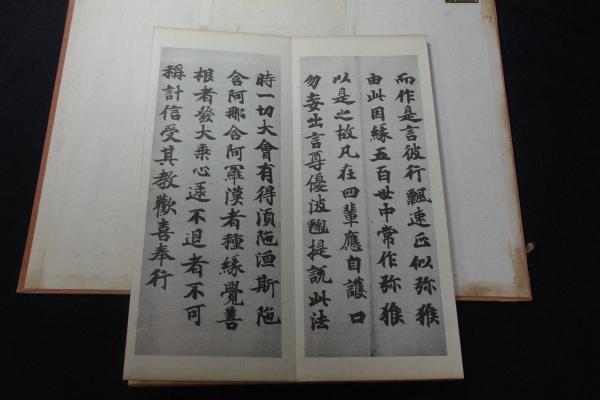 而作是言彼行飄速正似弥猴
由此因緣五百世中常作弥猴
以是之故凡在四輩應自護口
勿妄出言尊優波毱提説此法
時一切大會有得湏陁洹斯陁
含阿那含阿羅漢者種緣覺善
根者發大乘心逮不退者不可
稱計信受其教歡喜奉行